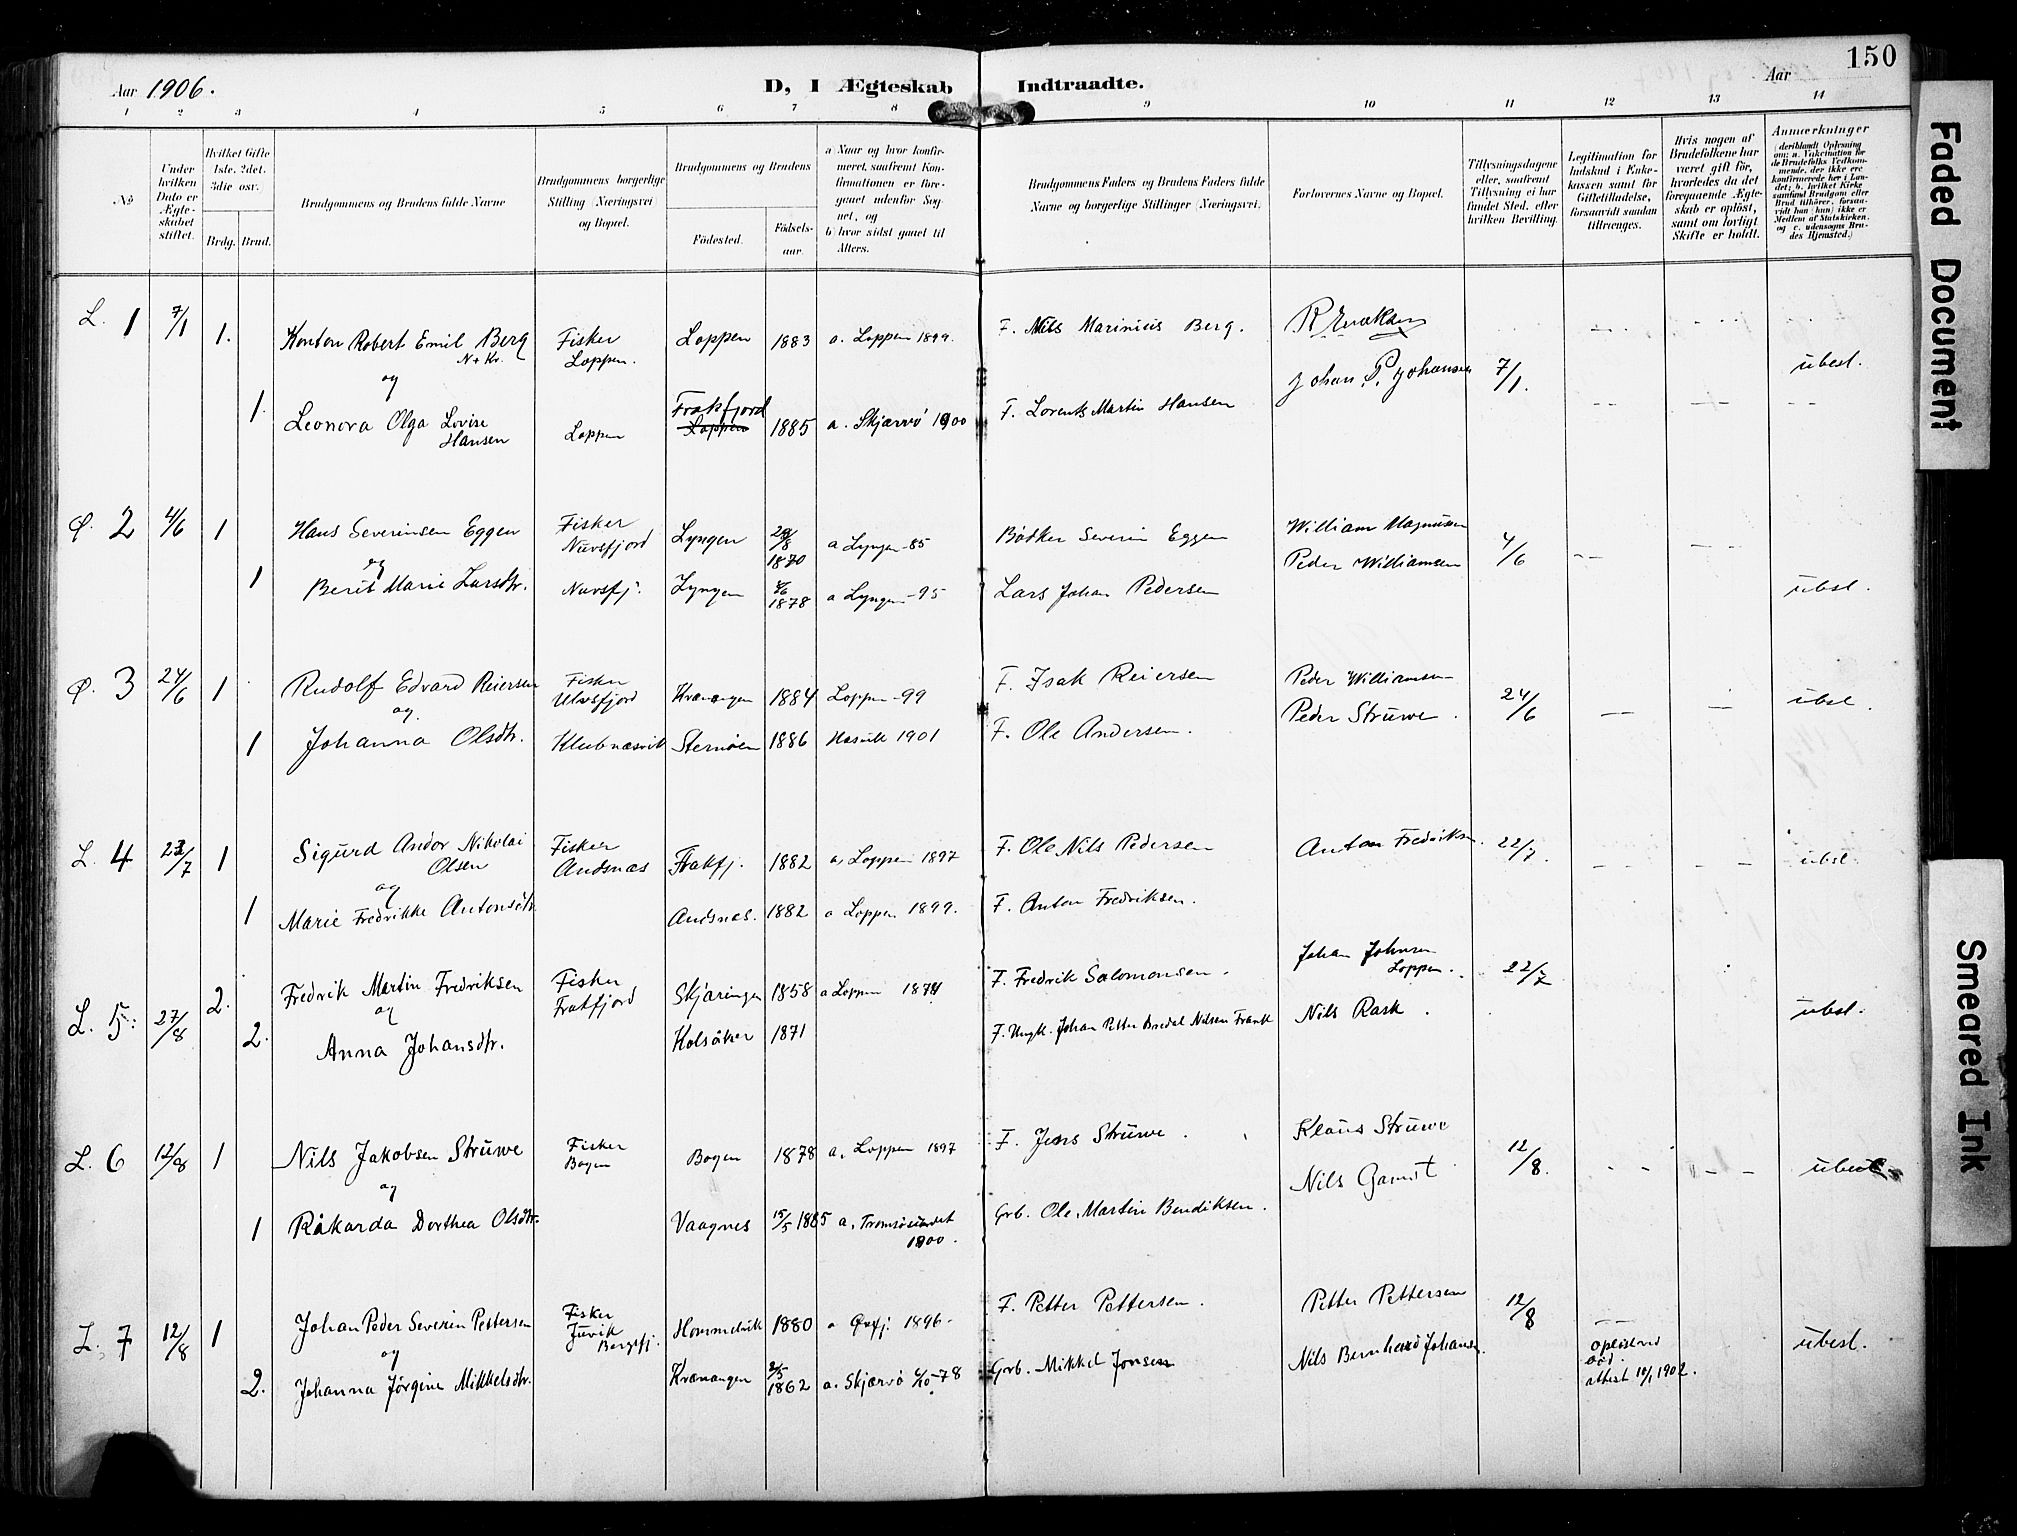 150
Aar 1906.
D, I Ægteskab Indtraadte.
Aar
1 2 3 4 5 6 7 8 9 10 11 12 13 14
No
Under hvilken Dato er Ægteskabet stiftet.
Hvilket Gifte 1ste. 2det. 3die osv.
Brdg. Brud.
Brudgommens og Brudens fulde Navne
Brudgommens borgerlige Stilling (Næringsvei) og Bopæl.
Brudgommens og Brudens
Fødested.
Fødselsaar.
a) Naar og hvor konfirmeret, saafremt Konfirmationen er foregaaet udenfor Sognet, og
b) hvor sidst gaaet til Alters.
Brudgommens Faders og Brudens Faders fulde Navne og borgerlige Stillinger (Næringsvei)
Forlovernes Navne og Bopæl.
Tillysningsdagene eller, saafremt Tillysning ei har fundet Sted, efter hvilken Bevilling.
Legitimation for Indskud i Enkekassen samt for Giftetilladelse, forsaavidt saadan tiltrænges.
Hvis nogen af Brudefolkene har været gift før, hvorledes da det foregaaende Ægteskab er opløst, samt om lovligt Skifte er holdt.
Anmærkninger
(deriblandt Oplysning om: a. Vakcination for de Brudefolks Vedkommende, der ikke ere konfirmerede her i Landet; b. hvilket Kirkesamfund Brudgom eller Brud tilhører, forsaavidt han (hun) ikke er Medlem af Statskirken, og c. udensogns Brudes Hjemsted.)
L. 1 7/1 1. Konton Robert Emil Berg Fisker Loppen 1883 a. Loppen 1899. F. Nils Marinius Berg.
N + Kv. Loppen.
og Johan P. Johansen 7/1. ubesl.
1. Leonora Olga Lovise Hansen Loppen Frakfjord Loppen 1885 a. Skjærvö 1900 F. Lorents Martin Hansen
Q. 2 4/6 1 Hans Severinsen Eggen Fisker Nuvsfjord Lyngen 29/8 1870 a Lyngen -85 Bödker Severin Eggen William Magnussen
og Peder Williamsen 4/6
1 Berit Marie Larsdtr. Nuvsfj. Lyngen 1878 a Lyngen -95 Lars Johan Pedersen ubsl.
Q. 3 24/6 1 Rudolf Edvard Reiersen Fisker Ulvsfjord Kvænangen 1884 Loppen -99 F. Isak Reiersen Peder Williamsen
og Peder Struwe. 24/6 ubsl.
1 Johanna Olsdtr. Klubnæsvik Sternöen 1886 Hasvik 1901 F. Ole Andersen.
L. 4 22/7 1 Sigurd Andor Nikolai Olsen Fisker Andsnæs Frakfj. 1882 a, Loppen 1897 F. Ole Nils Pedersen Anton Fredriksen. 22/7. ubsl.
og
1 Marie Fredrikke Antonsdtr. Andsnæs. 1882 a Loppen 1899. F. Anton Fredriksen.
L. 5. 27/8 2. Fredrik Martin Fredriksen Fisker Frakfjord Skjaringen 1858 a Loppen 1874 F. Fredrik Salomonsen. Johan Johnsen Loppen. 22/7
og Nils Rask. ubsl.
2. Anna Johansdtr. Kolsåker 1871 F. Ungk. Johan Petter Bredal Nilsen Frank
L. 6 12/8 1 Nils Jakobsen Struwe Fisker Bogen Bogen 1878 a, Loppen 1897 F. Jens Struwe. Klaus Struwe
og Nils Gamst 12/8. ubesl.
1 Råkarda Dorthea Olsdtr. Vaagnes 15/5 1885 a, Tromsösundet 1900. Grb. Ole Martin Bendiksen.
L. 7 12/8 1 Johan Peder Severin Pettersen Fisker Juvik Bergsfj. Hommelvik 1880 a Öxfj. 1896. F. Petter Pettersen. Petter Pettersen 12/8
og Nils Bernhard Johansen. ubesl.
2. Johanna Jörgine Mikkelsdtr. Kvænangen 2/5 1862 a. Skjærvö -78 Grb. Mikkel Jonsen attest 10/1 1902.
Faded Document
Smeared Ink